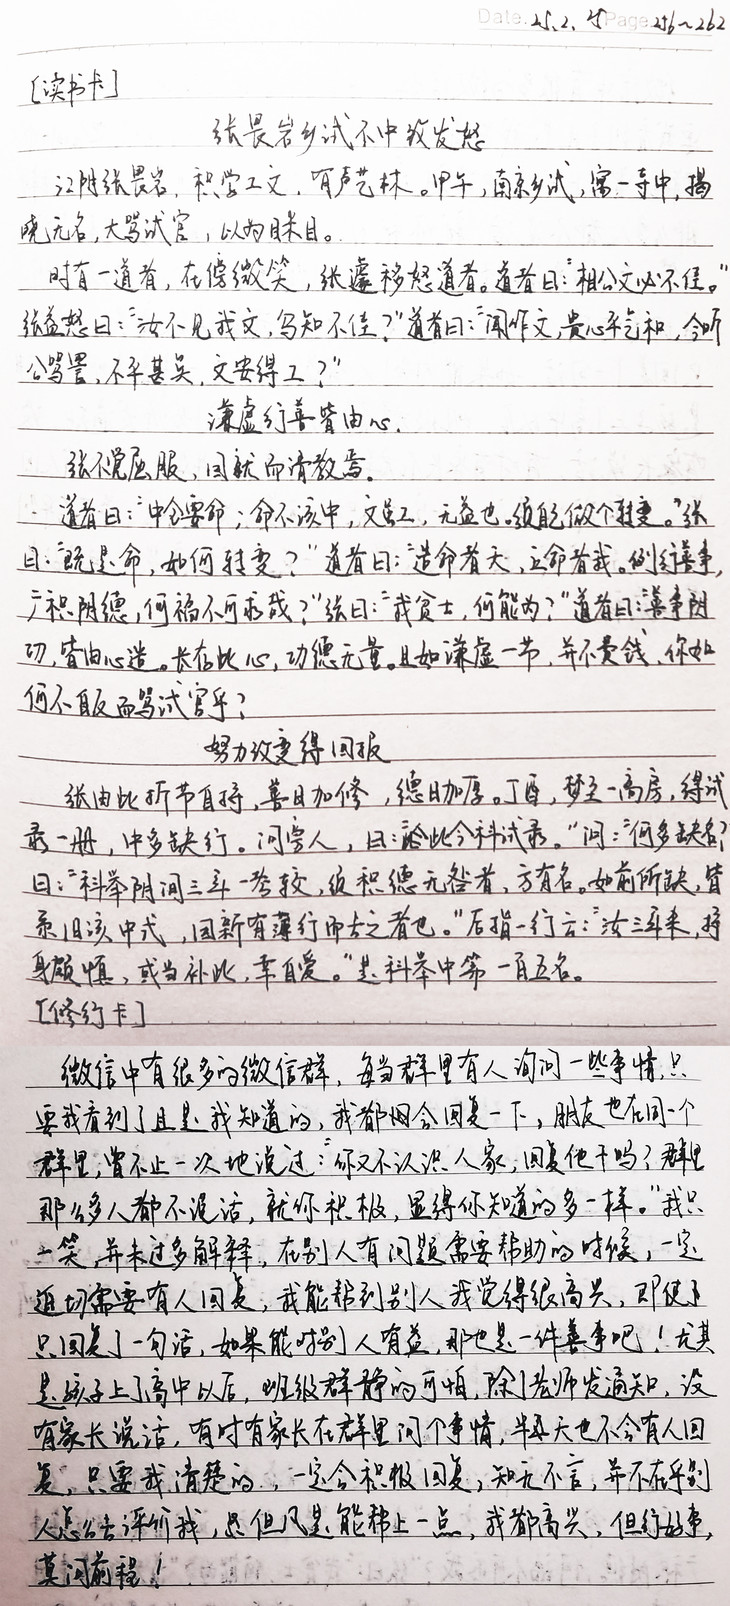 Date. 25.2.25 Page 256~262
[读书卡]
张畏岩乡试不中致发怒
江阴张畏岩，积学工文，有声艺林。甲午，南京乡试，寓一寺中，揭
晓无名，大骂试官，以为眯目。
时有一道者，在傍微笑，张遽移怒道者。道者曰："相公文必不佳。"
张益怒曰："汝不见我文，乌知不佳？"道者曰："闻作文，贵心平气和，今听
公骂詈，不平甚矣，文安得工？"
谦虚行善皆由心.
张不觉屈服，因就而请教焉。
道者曰："中全要命；命不该中，文虽工，无益也。须自己做个转变。"张
曰："既是命，如何转变？"道者曰："造命者天，立命者我。力行善事，
广积阴德，何福不可求哉？"张曰："我贫士，何能为？"道者曰："善事阴
功，皆由心造。长存此心，功德无量。且如谦虚一节，并不费钱，你如
何不自反而骂试官乎？
努力改变得回报
张由此折节自持，善日加修，德日加厚。丁酉，梦至一高房，得试
录一册，中多缺行。问旁人，曰："此今科试录。"问："何多缺名？"
曰："科举阴间三年一考较，须积德无咎者，方有名。如前所缺，皆
系旧该中式，因新有薄行而去之者也。"后指一行云："汝三年来，持
身颇慎，或当补此，幸自爱。"是科举中第一百五名。
[修行卡]
微信中有很多的微信群，每当群里有人询问一些事情，只
要我看到了且是我知道的，我都会回复一下，朋友也在同一个
群里，曾不止一次地说过："你又不认识人家，回复他干吗？群里
那么多人都不说话，就你积极，显得你知道的多一样。"我只
一笑，并未过多解释，在别人有问题需要帮助的时候，一定
迫切需要有人回复，我能帮到别人我觉得很高兴，即使
只回复了一句话，如果能对别人有益，那也是一件善事吧！尤其
是孩子上了高中以后，班级群静的可怕，除了老师发通知，没
有家长说话，有时有家长在群里问个事情，半天也不会有人回
复，只要我清楚的，一定会积极回复，知无不言，并不在乎别
人怎么去评价我，但凡是能帮上一点，我都高兴，但行好事，
莫问前程！